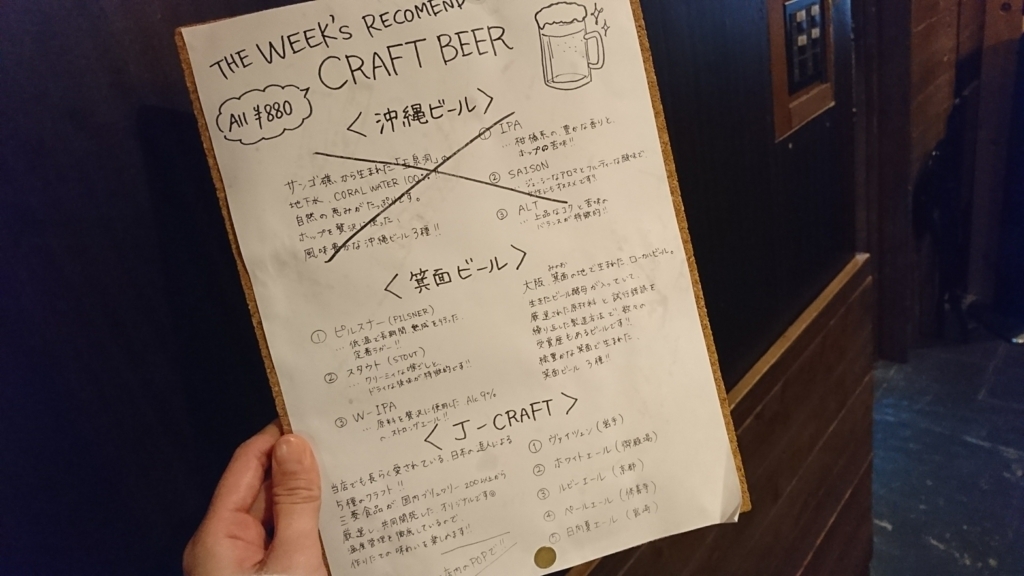 THE WEEK's RECOMEND
CRAFT BEER
All ¥880
〈沖縄ビール〉
サンゴ礁から生まれた
地下水、CORAL WATER 100%!!
自然の恵みがたっぷりです。
ホップを贅沢に使った、
風味豊かな沖縄ビール3種!!
① IPA
… 柑橘系の豊かな香りと、
ホップの苦味!!
② SAISON
… ジューシーなアロマとフルーティーな酸味で
③ ALT
… 上品なコクと苦味の
バランスが特徴的!!
〈箕面ビール〉
① ピルスナー (PILSNER)
… 低温で長期間熟成を行った
定番ラガー!!
② スタウト (STOUT)
… クリーミィな味わいと、
ドライな後味が特徴的です!!
③ W-IPA
… 原料を贅沢に使用した Alc 9%
の ストロングエール!!
みのお
大阪 箕面の地で生まれた ローカルビール。
生きたビール酵母が入っていて、
厳選された原材料と試行錯誤を
繰り返した製造方法で数々の
受賞歴もあるビールです!!
緑豊かな箕面で生まれた、
箕面ビール 3種!!
〈J-CRAFT〉
当店でも長らく愛されている、日本の達人による
5種のクラフト!!
三菱食品が国内ブリュワリー200以上から
厳選し、共同開発した オリジナルです◎
温度管理を徹底しているので、
作りたての味わいを楽しめます!!
店内のPOPで!!
① ヴァイツェン (岩手)
② ホワイトエール (御殿場)
③ ルビーエール (京都)
④ ペールエール (伊勢志)
⑤ 日向夏エール (宮崎)